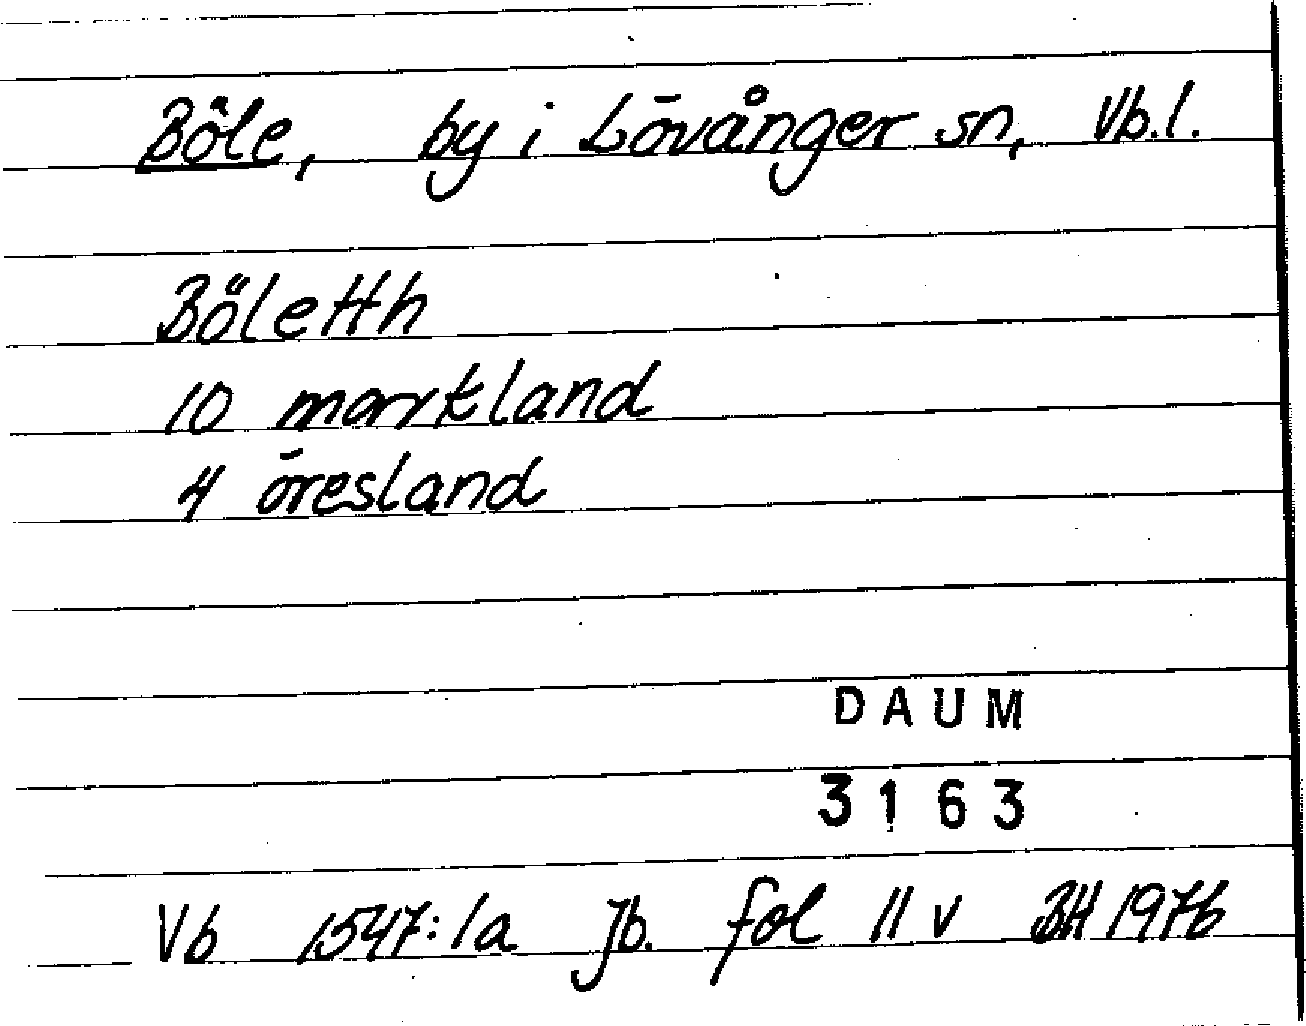 Böle, by i Lövånger sn, Vb.l.
Böletth
10 markland
4 öresland
DAUM
3163
Vb 1547:1a Jb. fol 11 v BH 1976